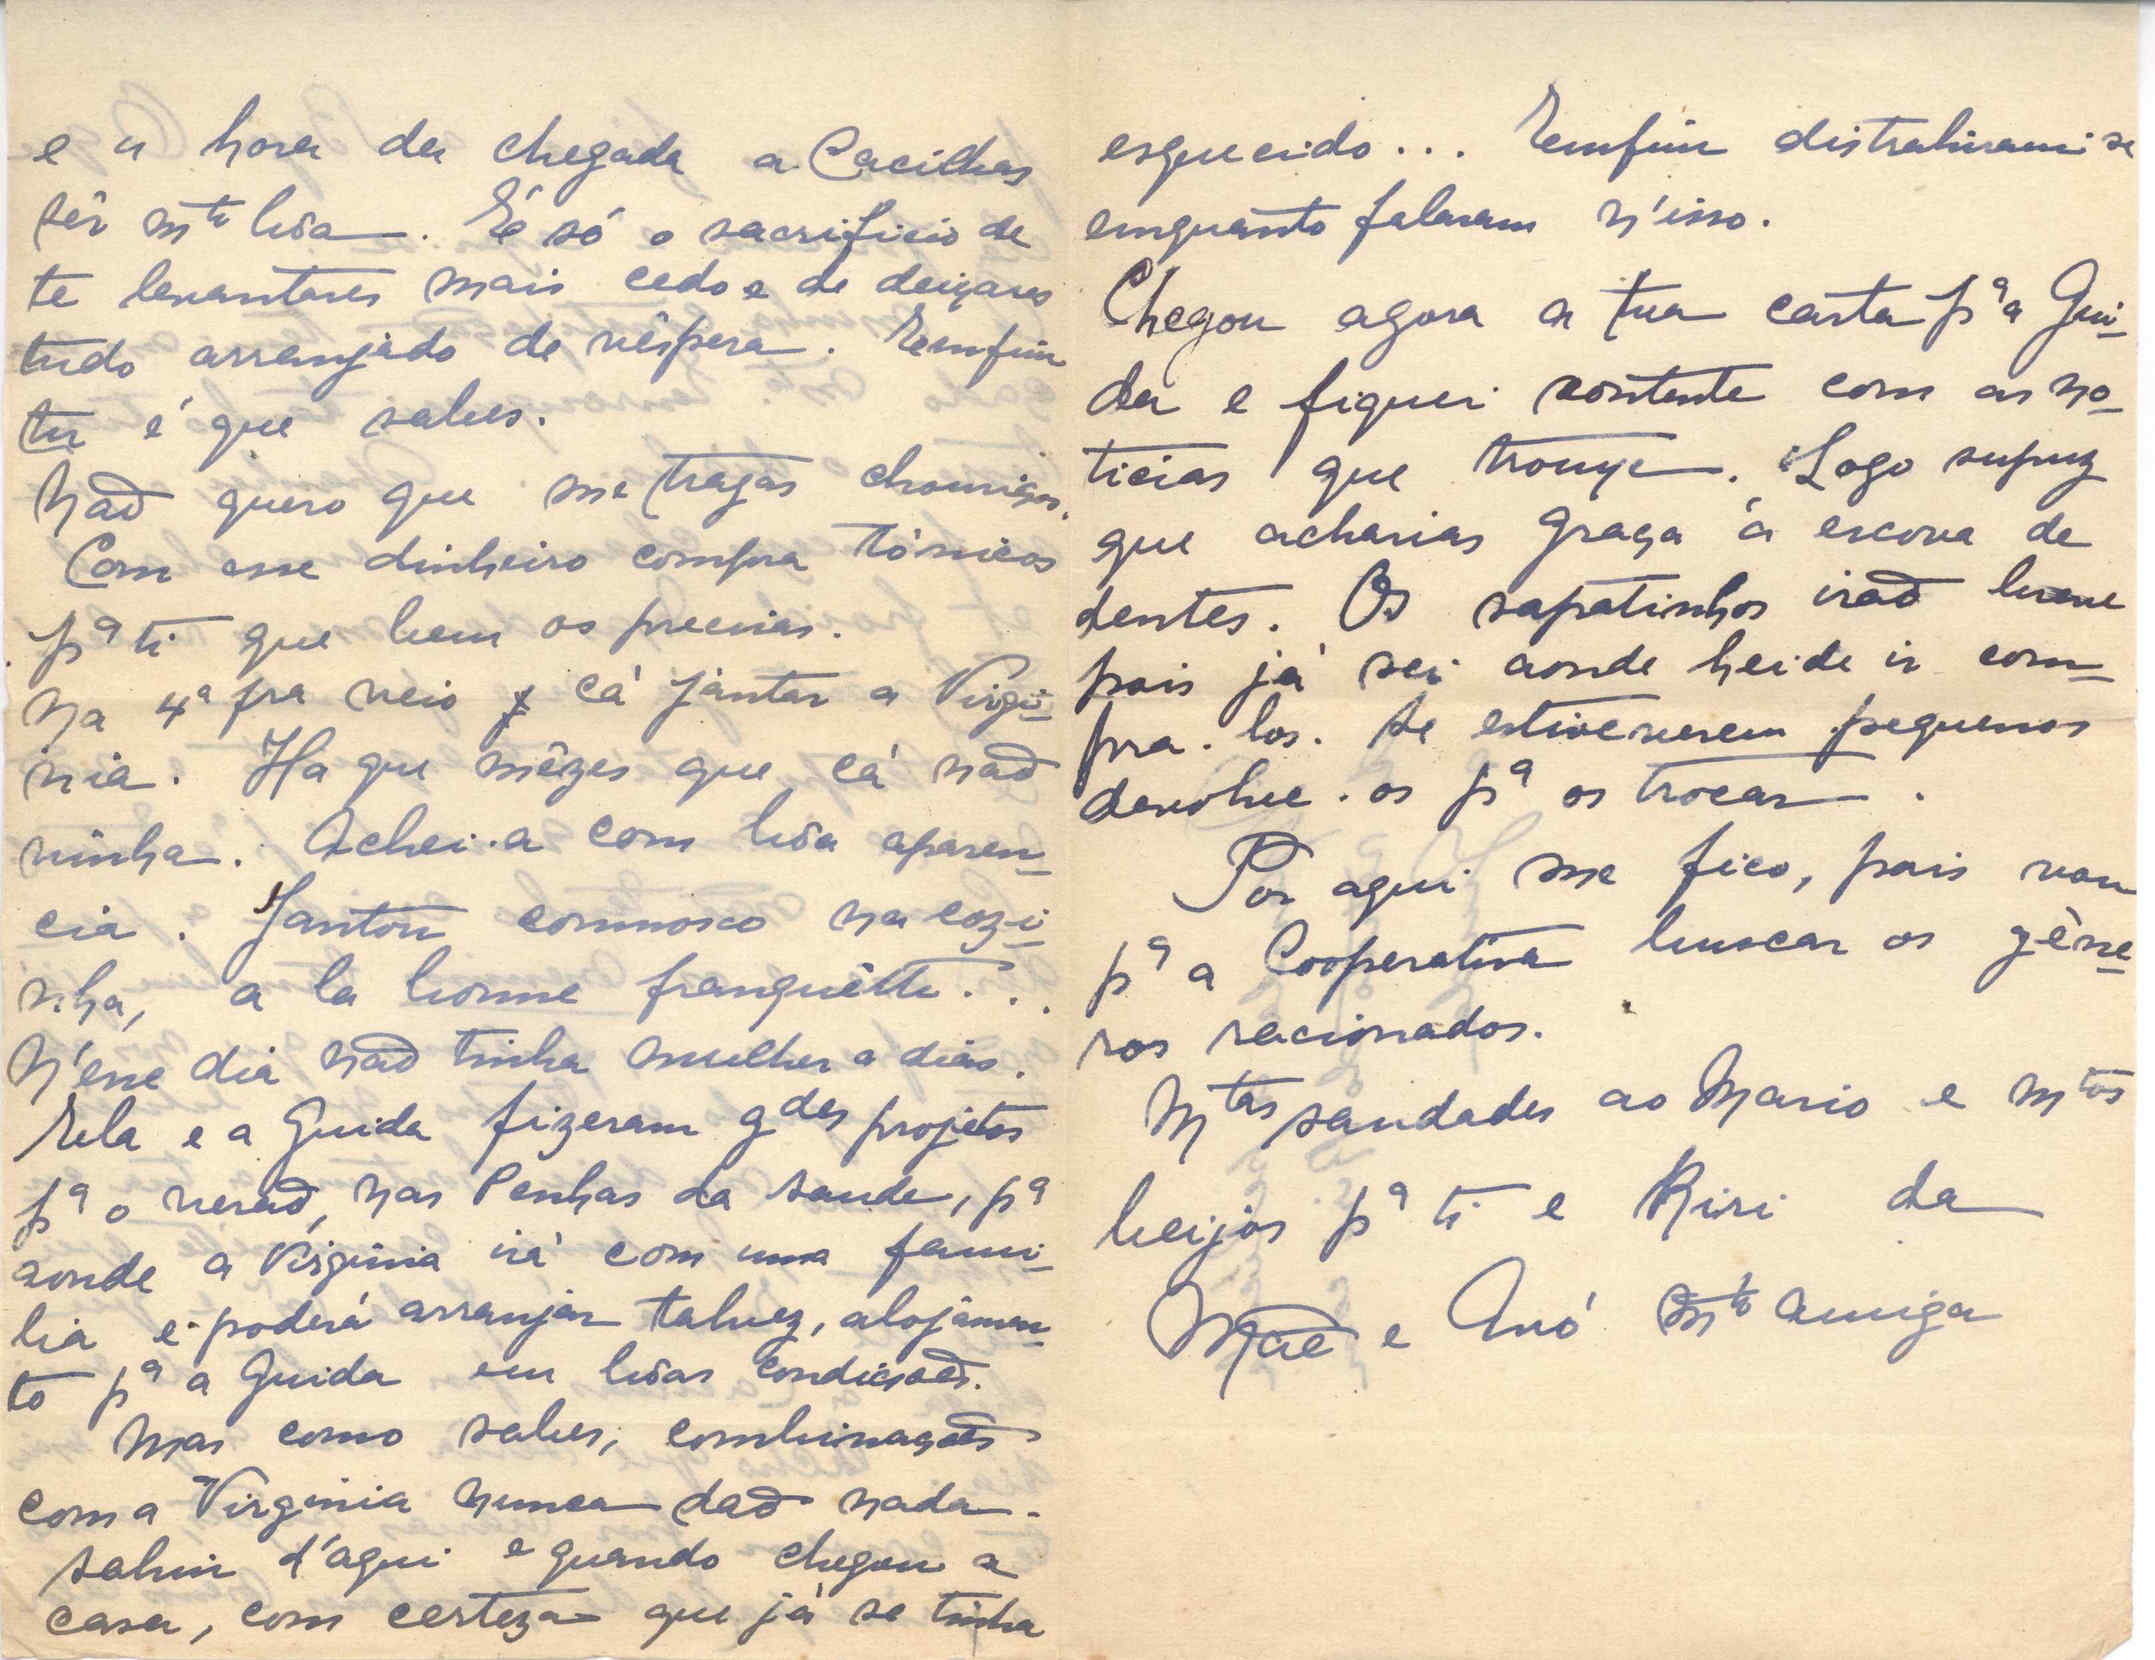 e a hora da chegada a Cacilhas
sêr mto bôa. É só o sacrificio de
te levantares mais cedo e de deixares
tudo arranjado de véspera. Emfim
tu é que sabes.
Não quero que me tragas chouriços.
Com esse dinheiro compra tónicos
pª ti que bem os precisas.
Na 4ª fra veio cá jantar a Virgi-
nia. Ha que mêzes que cá não
vinha. Achei-a com bôa aparen-
cia. Jantou comnosco na cozi-
nha, a la bonne franquette...
N'esse dia não tinha mulher a dias.
Ela e a Guida fizeram gdes projetos
pª o verão, nas Penhas da Saude, pª
aonde a Virginia irá com uma fami-
lia e poderá arranjar talvez, alojamen-
to pª a Guida em bôas condições.
Mas como sabes, combinações
com a Virginia nunca dão nada.
Sahiu d'aqui e quando chegou a
casa, com certeza que já se tinha
esquecido... Emfim distrahiram-se
emquanto falaram n'isso.
Chegou agora a tua carta pª a Gui-
da e fiquei contente com as no-
ticias que trouxe. Logo supuz
que acharias graça á escova de
dentes. Os sapatinhos irão breve
pois já sei aonde heide ir com-
pra-los. Se estiverem pequenos
devolve-os pª os trocar.
Por aqui me fico, pois vou
pª a Cooperativa buscar os géne-
ros racionados.
Mtas saudades ao Mario e mtos
beijos pª ti e Riri da
Mãe e Avó mto amiga